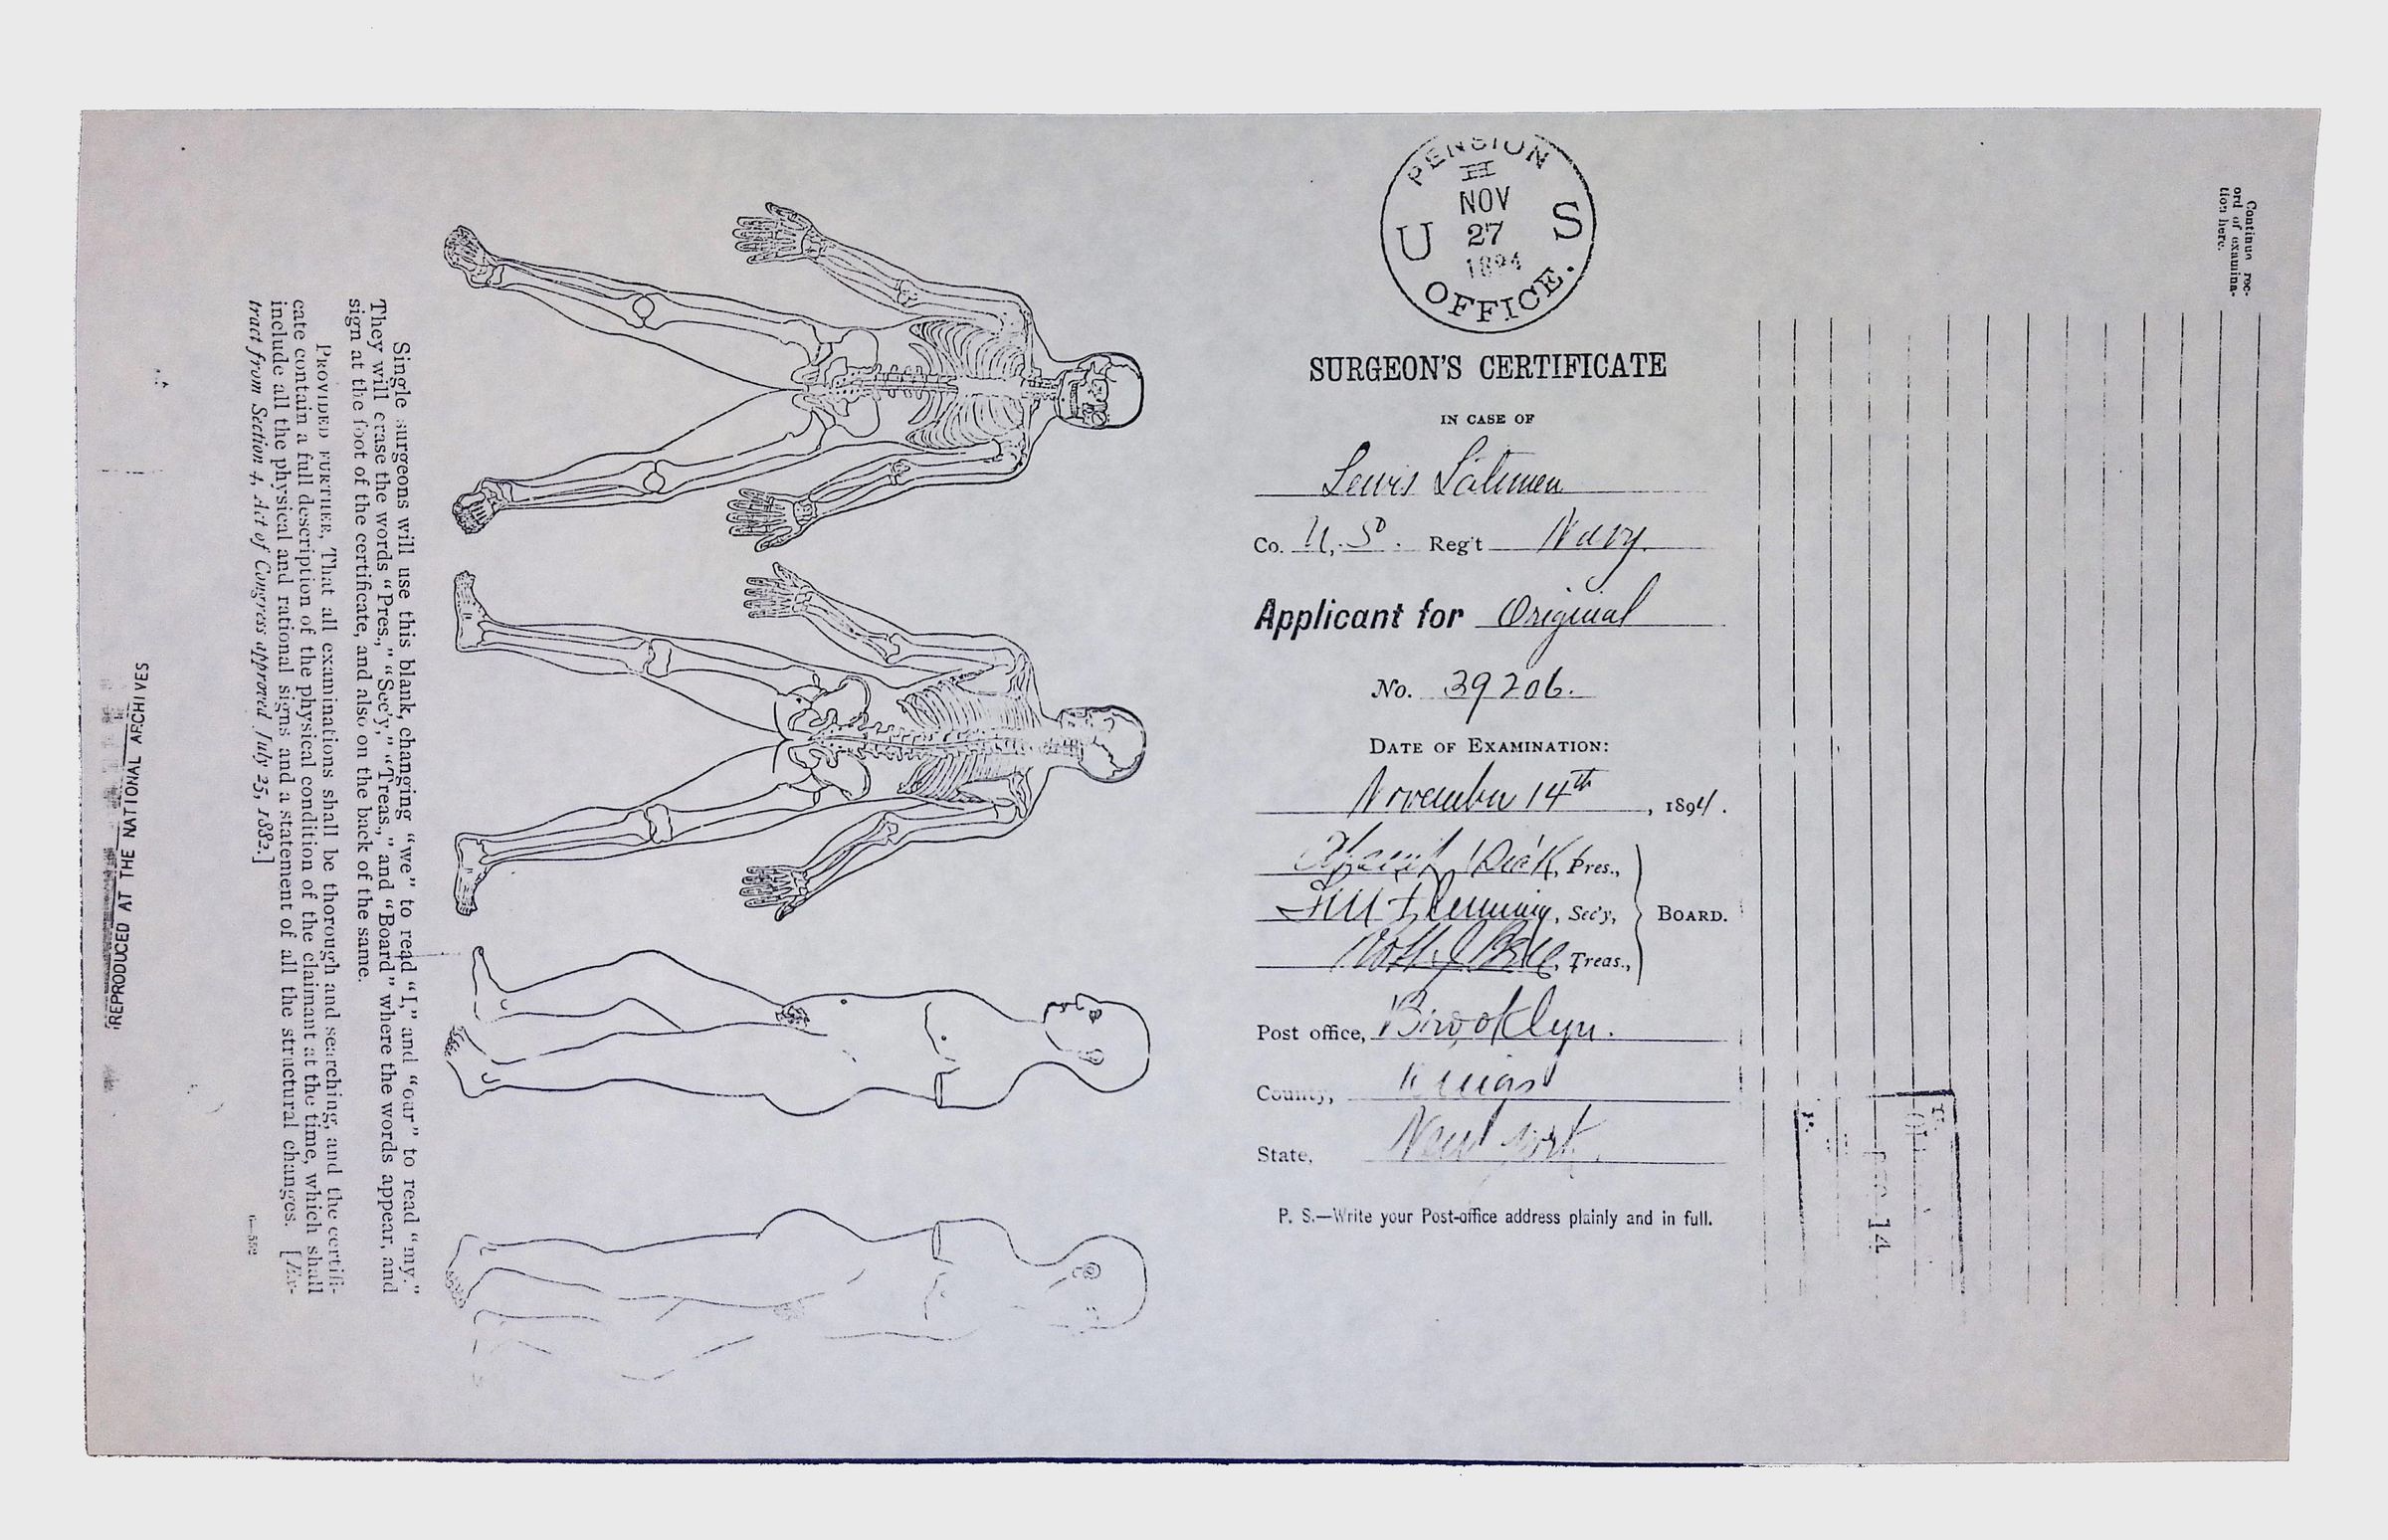 Single surgeons will use this blank, changing “we” to read “I,” and “our” to read “my.”
They will erase the words “Pres.,” “Sec'y,” “Treas.,” and “Board” where the words appear, and
sign at the foot of the certificate, and also on the back of the same.
PROVIDED FURTHER, That all examinations shall be thorough and searching, and the certifi-
cate contain a full description of the physical condition of the claimant at the time, which shall
include all the physical and rational signs and a statement of all the structural changes. [Ex-
tract from Section 4, Act of Congress approved July 25, 1882.]
REPRODUCED AT THE NATIONAL ARCHIVES
PENSION
H
NOV
U 27 S
1894
OFFICE.
SURGEON'S CERTIFICATE
IN CASE OF
Lewis Latimer
Co. U. S. Reg't Navy.
Applicant for Original
No. 39206.
DATE OF EXAMINATION:
November 14th, 1894.
Pres.,
Sec'y, BOARD.
Treas.,
Post office, Brooklyn.
County, Kings
State, New York.
P. S.—Write your Post-office address plainly and in full.
Continue rec-
ord of examina-
tion here.
14